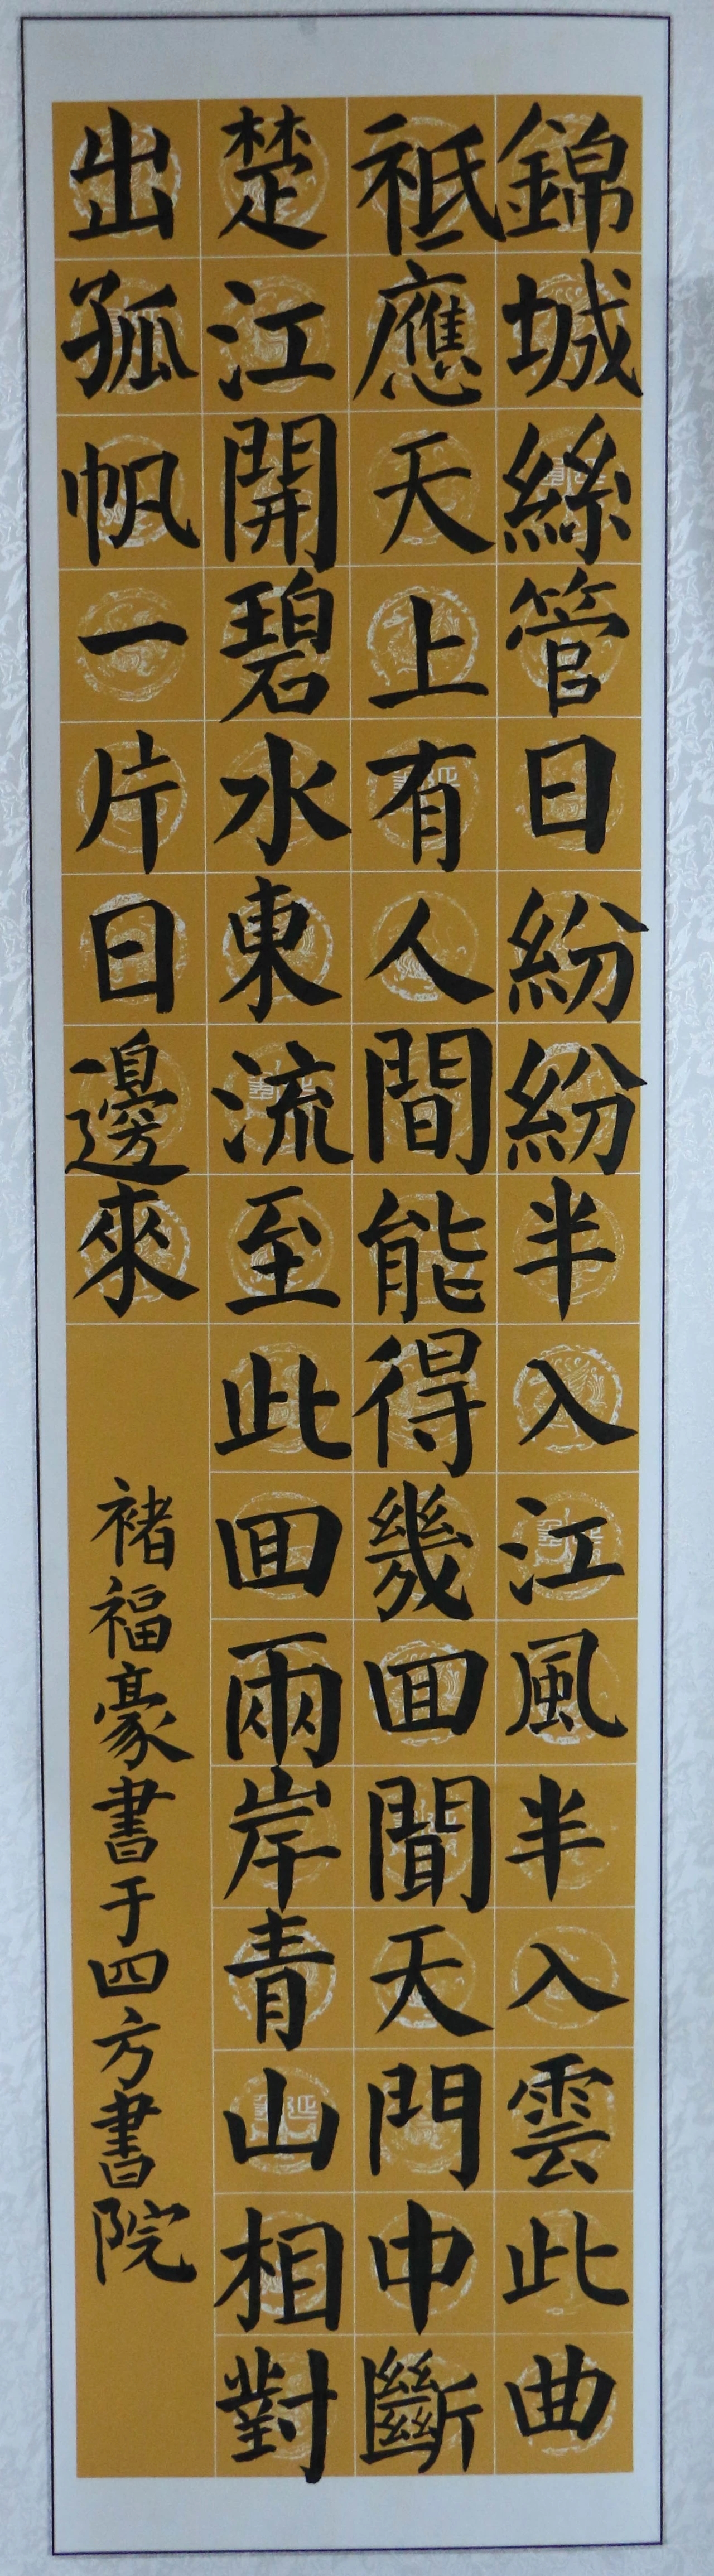 錦城絲管日紛紛半入江風半入雲此曲
祗應天上有人間能得幾囬聞天門中斷
楚江開碧水東流至此囬兩岸青山相對
出孤帆一片日邊來
褚福豪書于四方書院